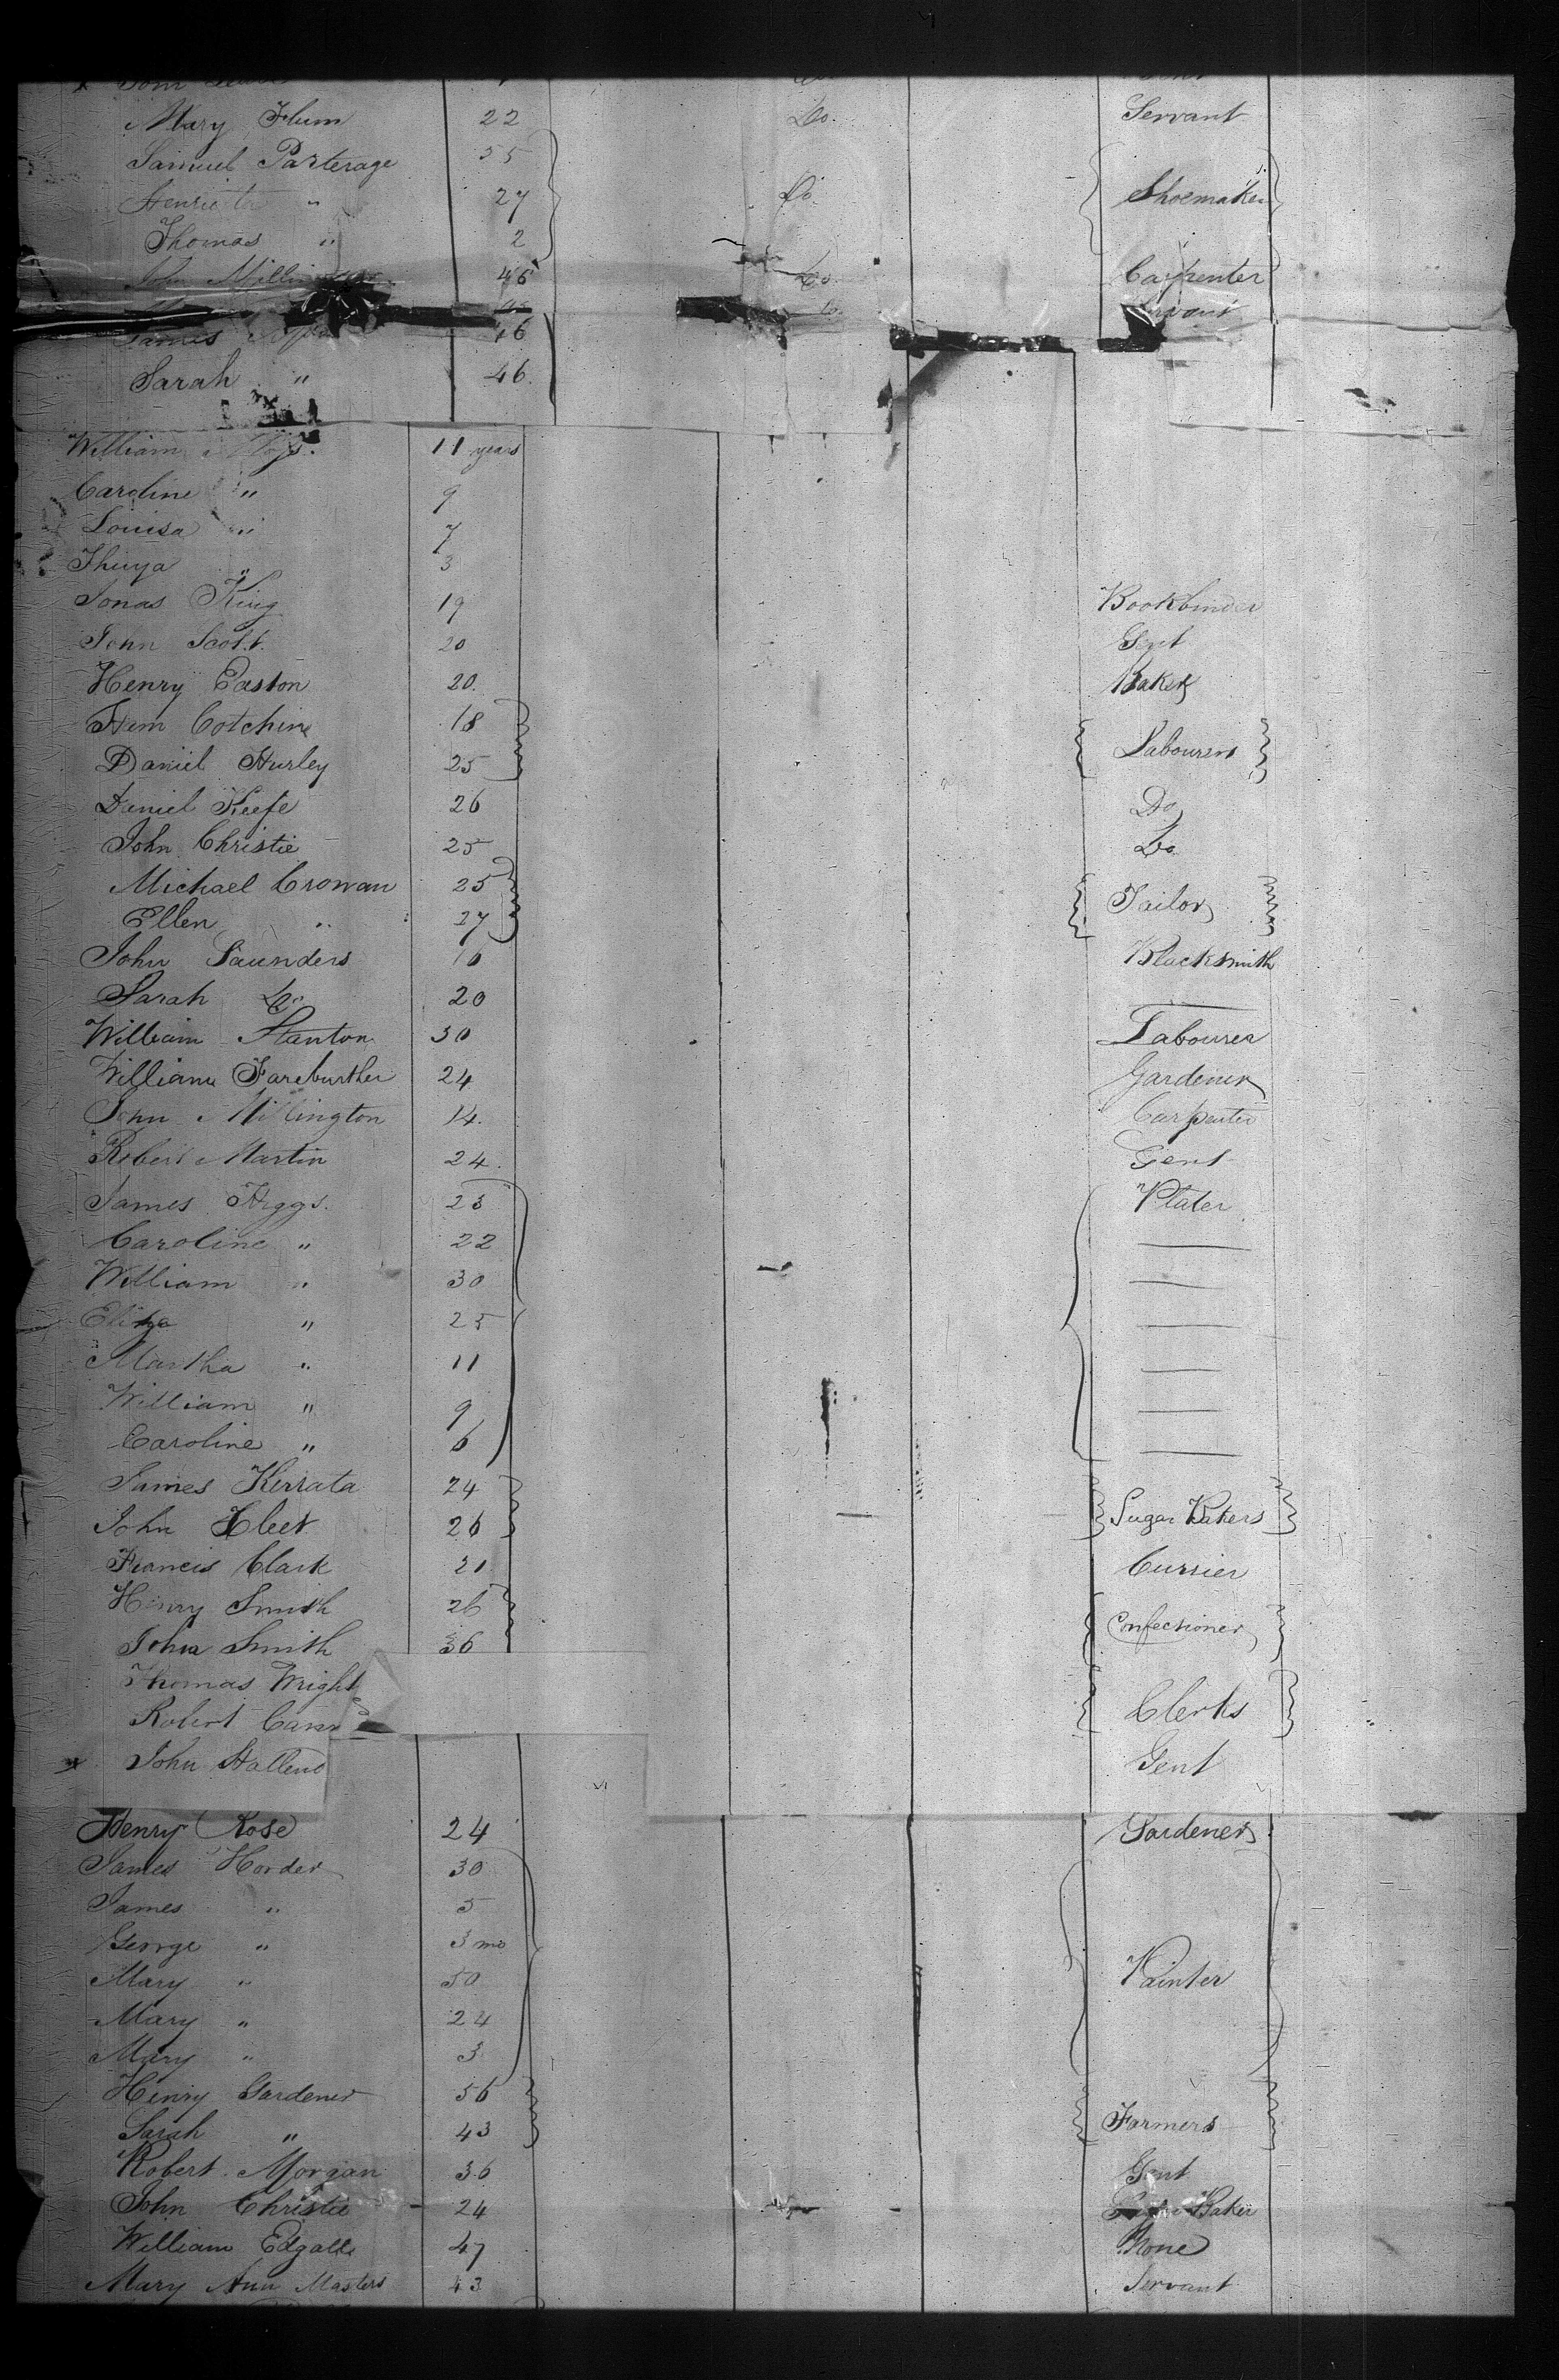 Mary Flum 22 Do. Servant
Samuel Parterage 35
Henrietta " 27 Do. Shoemaker
Thomas " 2
John 46 Do. Carpenter
Do. Servant
James 46
Sarah " 46.
William 11 years
Caroline " 9
Louisa " 7
" 3
Jonas King 19 Bookbinder
John Scott. 20 Gent
Henry Easton 20. Baker
Cotchin 18
Labourers
Daniel Hurley 25
Daniel Keefe 26 Do
John Christie 25 Do
Michael Crowan 25
Tailor
Ellen " 27
John Saunders 16 Blacksmith
Sarah Do 20
William Stanton 30 Labourer
William Fareburther 24 Gardener
John Millington 14. Carpenter
Robert Martin 24. Gent
James Higgs. 23 Plater
Caroline " 22
William " 30
Eliza " 25
Martha " 11
William " 9
Caroline " 6
James Kerrata 24
Sugar Bakers
John Kleet 26
Francis Clark 21 Currier
Henry Smith 26
Confectioner
John Smith 36
Thomas Wright
Clerks
Robert
John Gent
Henry Rose 24 Gardener
James Horder 30
James " 5
George " 3 mo
Mary " 50 Painter
Mary " 24
Mary " 3
Henry Gardener 56
Farmers
Sarah " 43
Robert Morgan 36 Gent
John Christie 24 Baker
William Edgalls 47 None
Mary Ann Masters 43 Servant